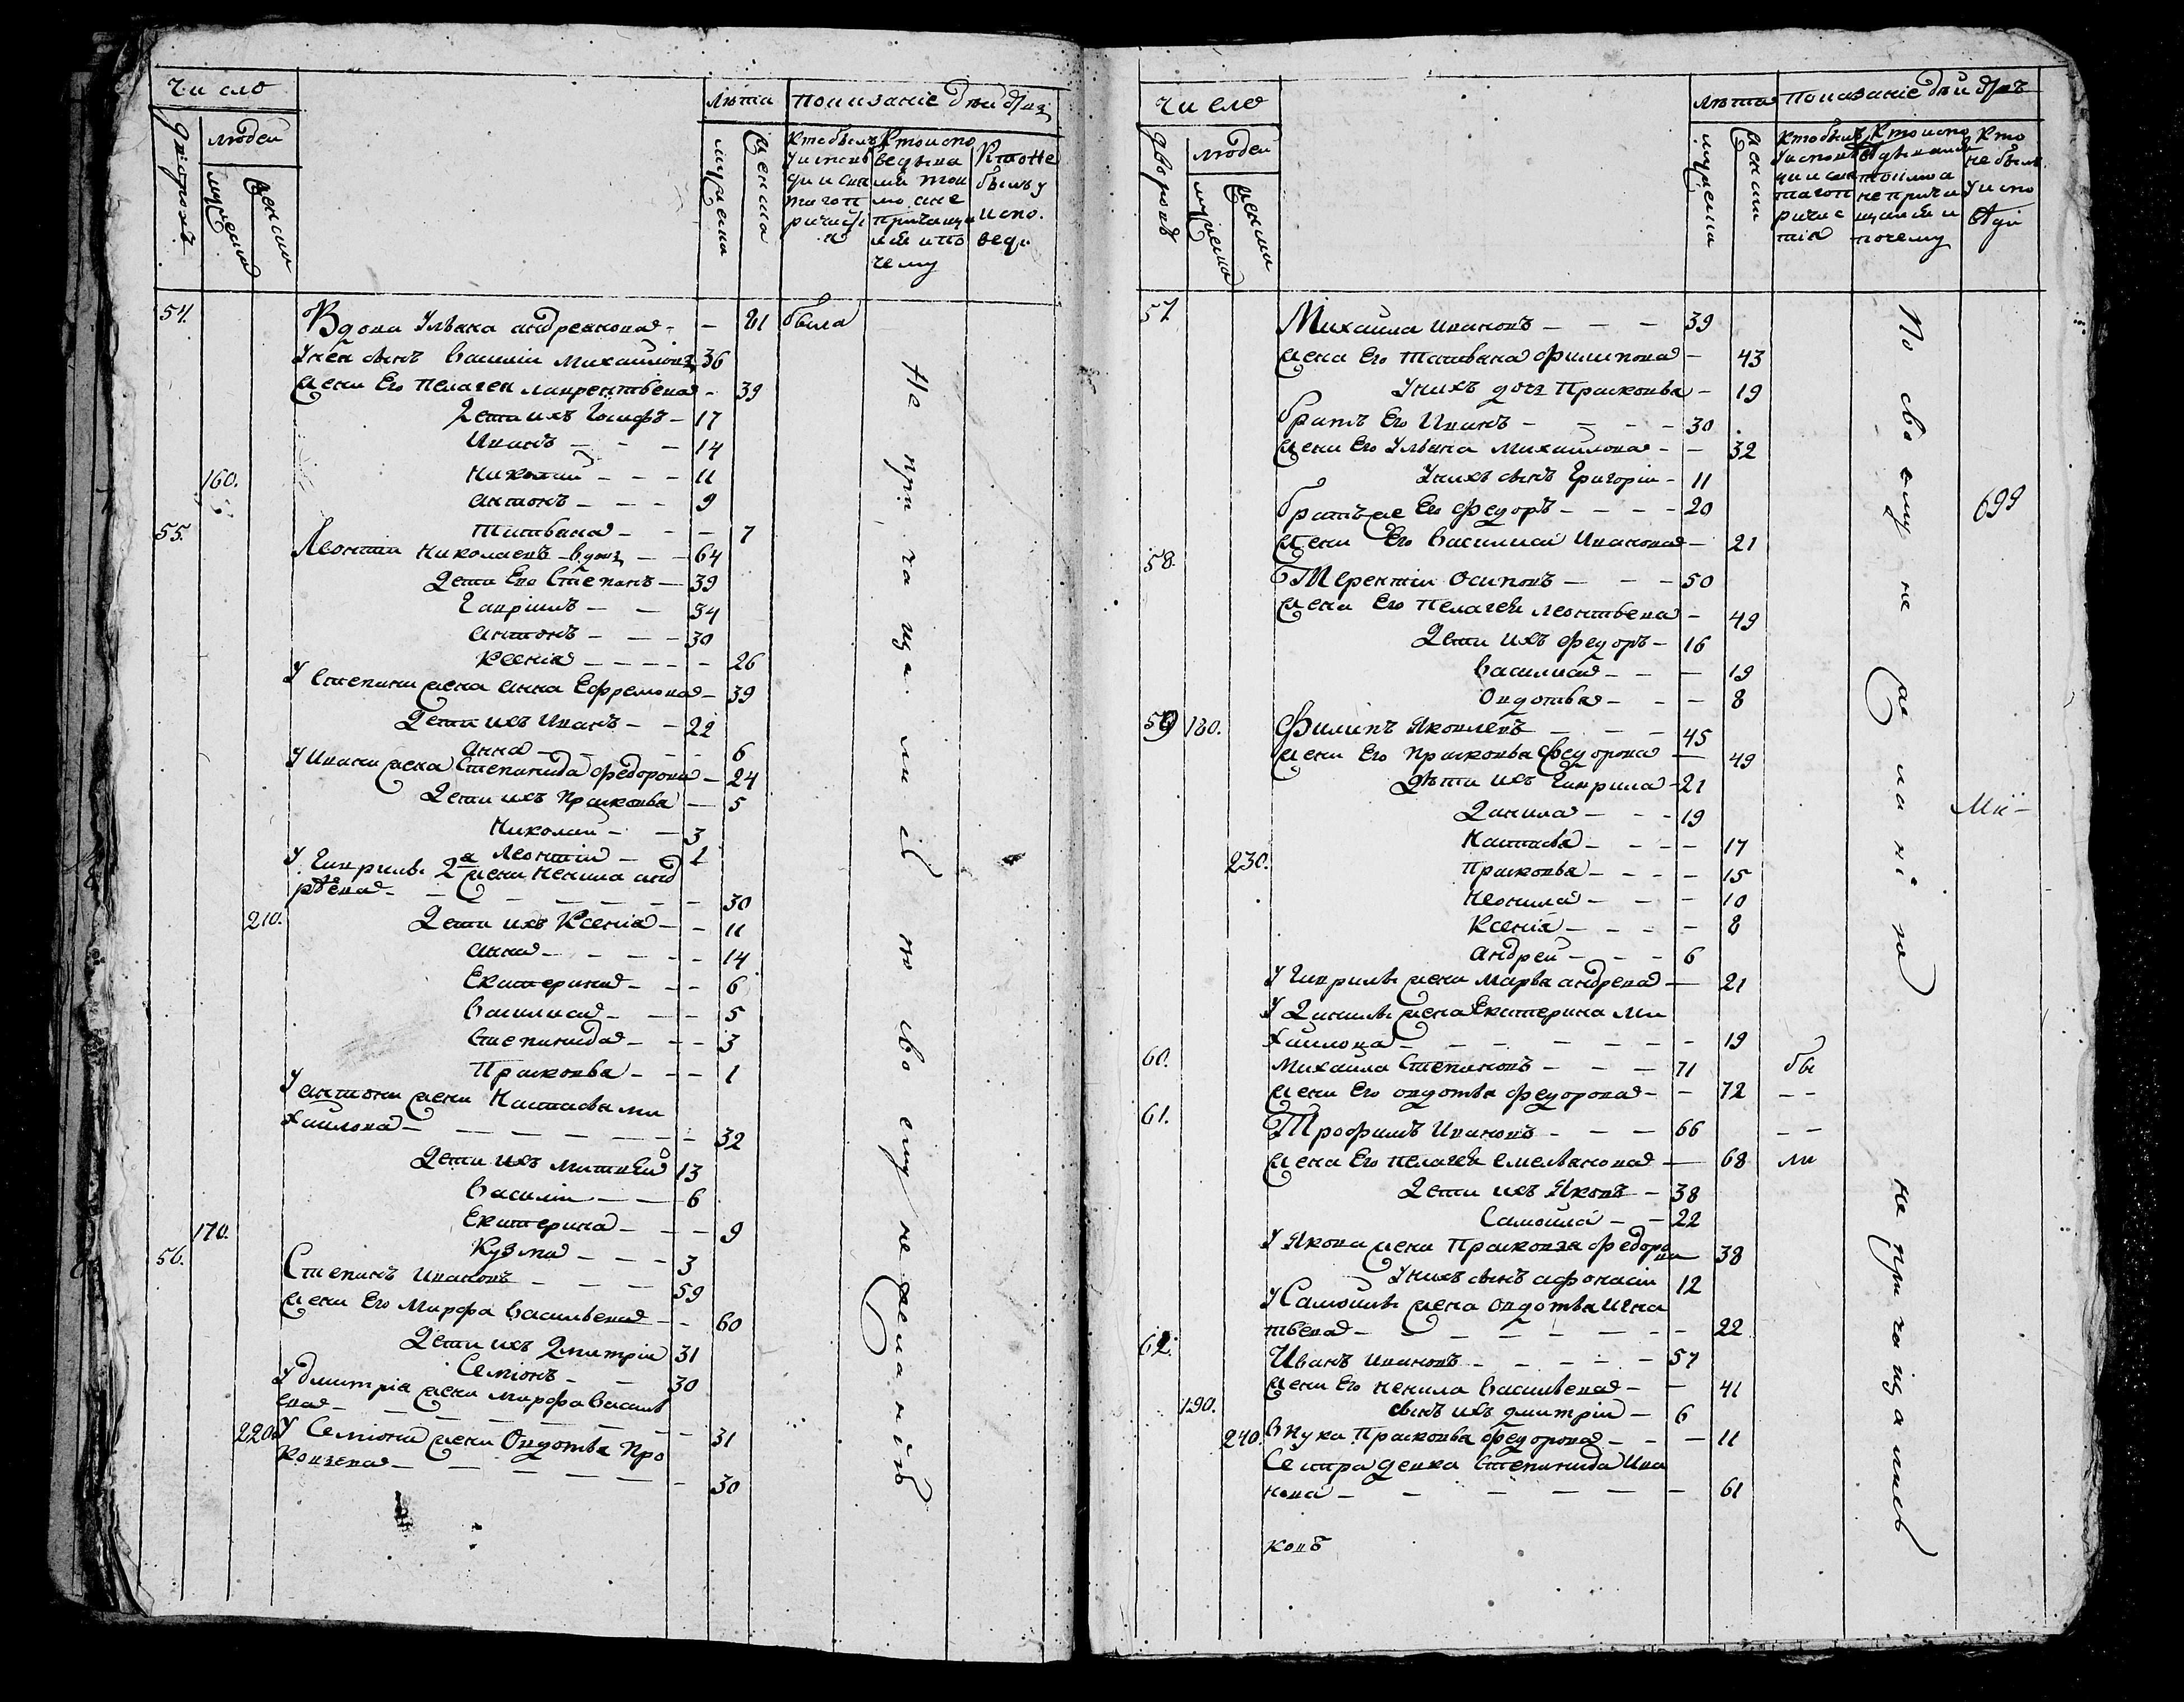 Число
Дворовъ
людей
мужеска
женска
Лѣта
мужеска
женска
Показаніе дѣйств
Кто былъ у исповеди и свя таго п ричасті я
Кто испо ведыва лся токмо а не причаща лся и по чему
Кто не былъ у испо веди
54. Вдова Ульяна андреянова - - 81 была
У нея сынъ василий михайловъ 36
жена его пелагея лаврентьева - 39
Дети ихъ Іосифъ - 17
Иванъ - - - 14
Николай - - - 11
160. антонъ - - - 9
татьяна - - - 7
55. Леонтий николаевъ - вдовъ - - 64
Дети Его Степанъ - 39
Гаврилъ - - 34
антонъ - - - 30
Ксения - - - - - 26
У степана жена анна Ефремова - 39
Дети ихъ Иванъ - - 22
анна - - - - 6
У Ивана жена Степанида федорова - 24
Дети ихъ прасковья - 5
Николай - - 3
Леонтий - 1
У Гаврилы 2я жена ненила анд
рѣева - - - - - - - 30
210. Дети ихъ Ксенія - - 11
анна - - - - - 14
Екатерина - - - 6
Василиса - - - 5
Степанида - - - 3
Прасковья - - - 1
У антона жена Настасья ми
хайлова - - - - - - 32
Дети ихъ матвей 13
Василий - - 6
170. Екатерина - - - 9
Кузма - - - 3
56. Степанъ Ивановъ - - - 59
жена Его Марфа Васильева - - 60
Дети ихъ Дмитрий 31
Семіонъ - - 30
У дмитрія жена марфа василь
ева - - - - - - 31
220. У Семіона жена Овдотья Про
копьева - - - - - - 30
Не причащались по своему нежеланию
Число
Дворовъ
людей
мужеска
женска
Лѣта
мужеска
женска
Показаніе дѣйств
Кто былъ у исповѣ ди и свя таго п ричас тія
Кто испо ведывался токмо а не прича щался и почему
Кто не былъ у испо вѣди
57. Михаила ивановъ - - - 39
жена Его татьяна филипова - 43
У нихъ дочь Прасковья - 19
братъ Его Иванъ - - - - 30
жена Его Ульяна Михайлова - - 32
У нихъ сынъ Григорий - 11
братъ же Его федоръ - - - - 20
жена Его Василиса Иванова - 21
58. Терентий осиповъ - - - 50
жена Его Пелагея леонтьева - 49
Дети ихъ федоръ - 16
василиса - - - 19
Овдотья - - - 8
59 180. Филипъ Яковлевъ - - - 45
жена Его Прасковья федорова - 49
Дѣти ихъ Гаврила - 21
Данила - - - 19
Настасья - - - - 17
230. Прасковья - - - - 15
Неонила - - - 10
Ксенія - - - - 8
андрей - - - 6
У Гаврилы жена Марья андрева - 21
У Данилы жена Екатерина Ми
хайлова - - - - - - - 19
60. Михаила Степановъ - - - 71 бы
жена Его овдотья федорова - - 72 - -
61. Трофимъ Ивановъ - - - 66 - -
жена Его пелагея емельянова - 68 ли
Дети ихъ Яковъ - 38
Самойла - - 22
У Якова жена Прасковья федоро
ва 38
У нихъ сынъ афонасий 12
У Самойлы жена Овдотья игна
тьева - - - - - - - 22
62. Иванъ ивановъ - - - - - 57
жена Его ненила васильева - - 41
190. сынъ ихъ дмитрий - 6
240. Внука Прасковья федорова - - - 11
Сестра девка Степанида Ива
нова - - - - - - 61
По своему не желанию не причащались
699
Ми -
ковъ